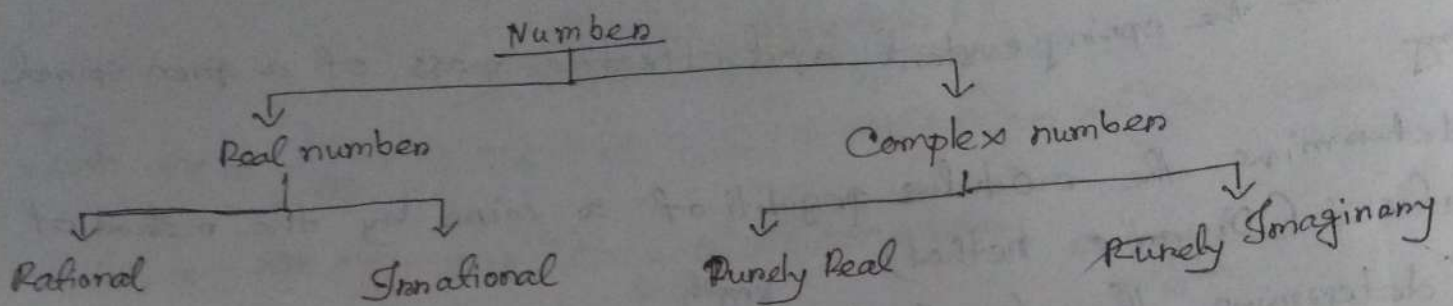 Number
Real number
Complex number
Rational
Irrational
Purely Real
Purely Imaginary